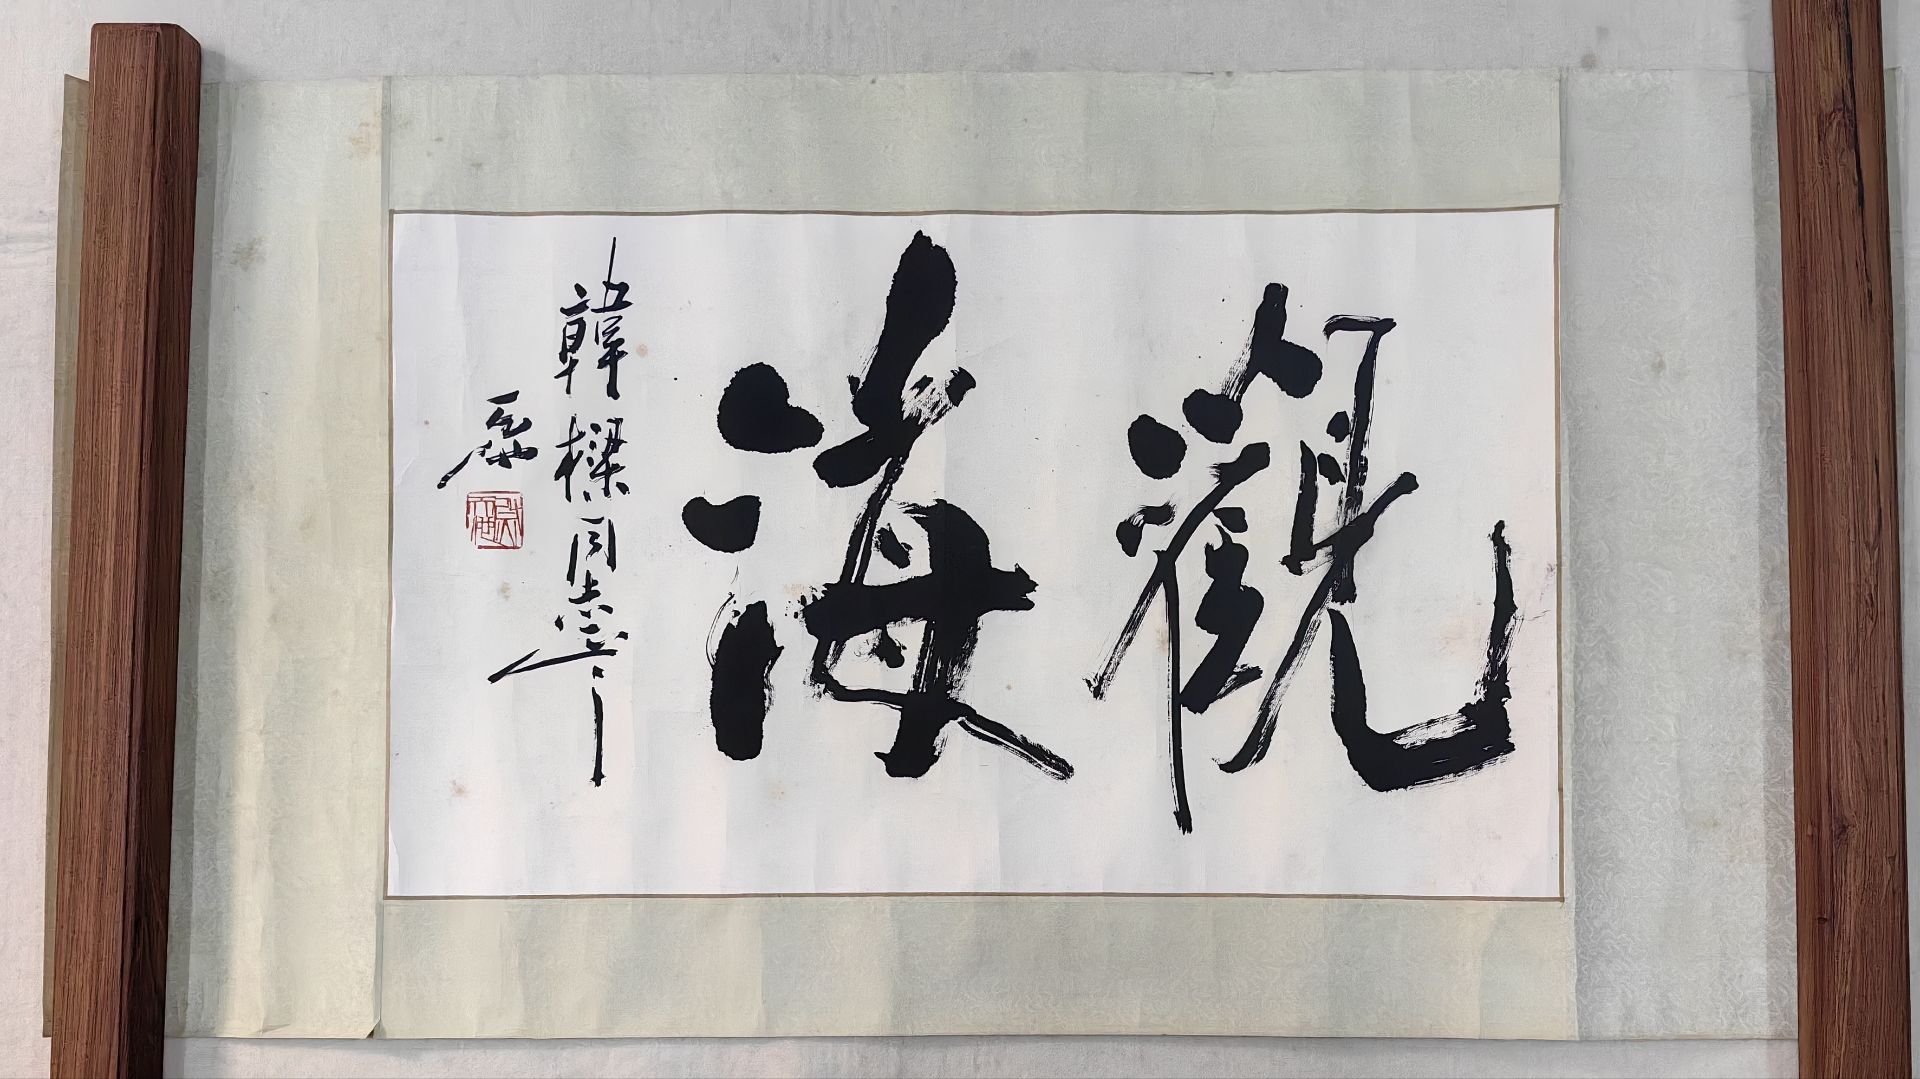 觀海
韓樑同志